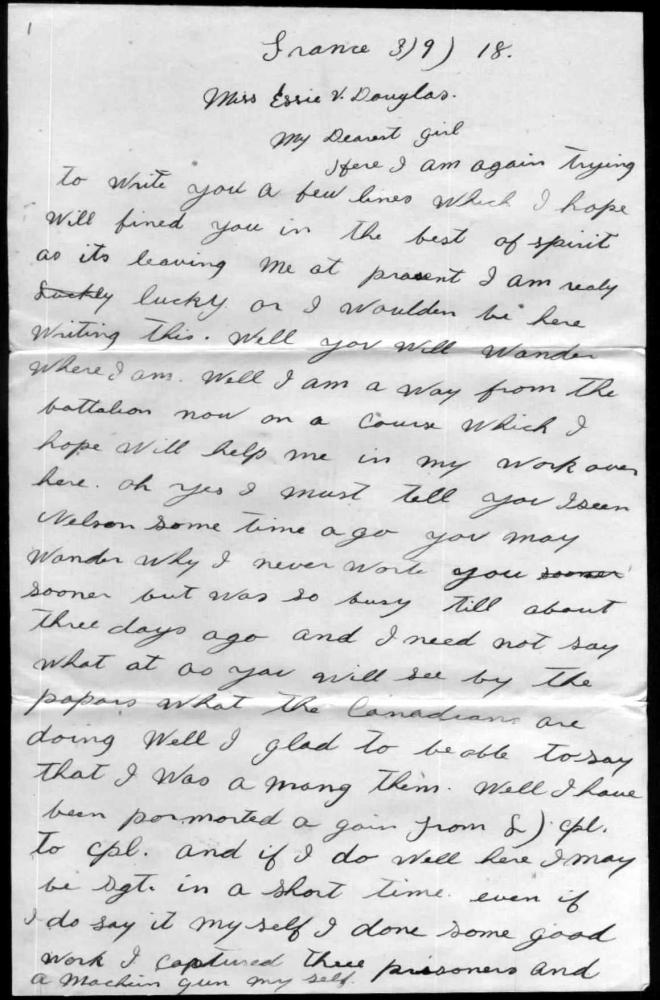 1
France 3/9/ 18.
Miss Essie V. Douglas.
My Dearest girl
Here I am again trying
to write you a few lines which I hope
will fined you in the best of spirit
as its leaving me at prasent I am realy
luckly lucky. or I woulden be here
writing this. Well you will wander
where I am. Well I am a way from the
battalion now on a course which I
hope will help me in my work over
here. oh yes I must tell you I seen
Nelson some time ago you may
wander why I never worte you sooner
sooner but was so busy till about
three days ago and I need not say
what at as you will see by the
papars what the Canadians are
doing Well I glad to be able to say
that I was a mang them. Well I have
been pormorted a gain from L/cpl.
to cpl. and if I do well here I may
be Sgt. in a short time. even if
I do say it my self I done some good
work I captured three prisoners and
a machien gun my self.